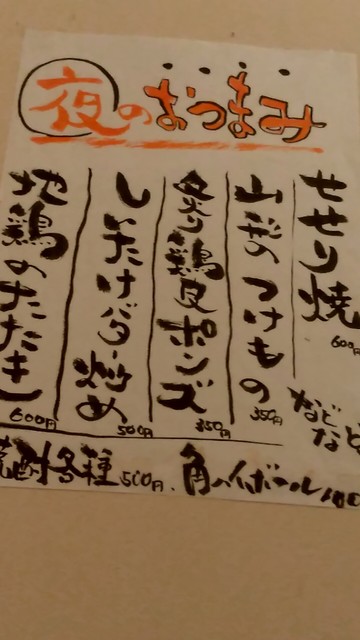 夜のおつまみ
せせり焼
600円
山形のつけもの
350円
炙り鶏皮ポンズ
350円
しいたけバター炒め
500円
地鶏のたたき
600円
などなど
焼酎各種 500円、角ハイボール